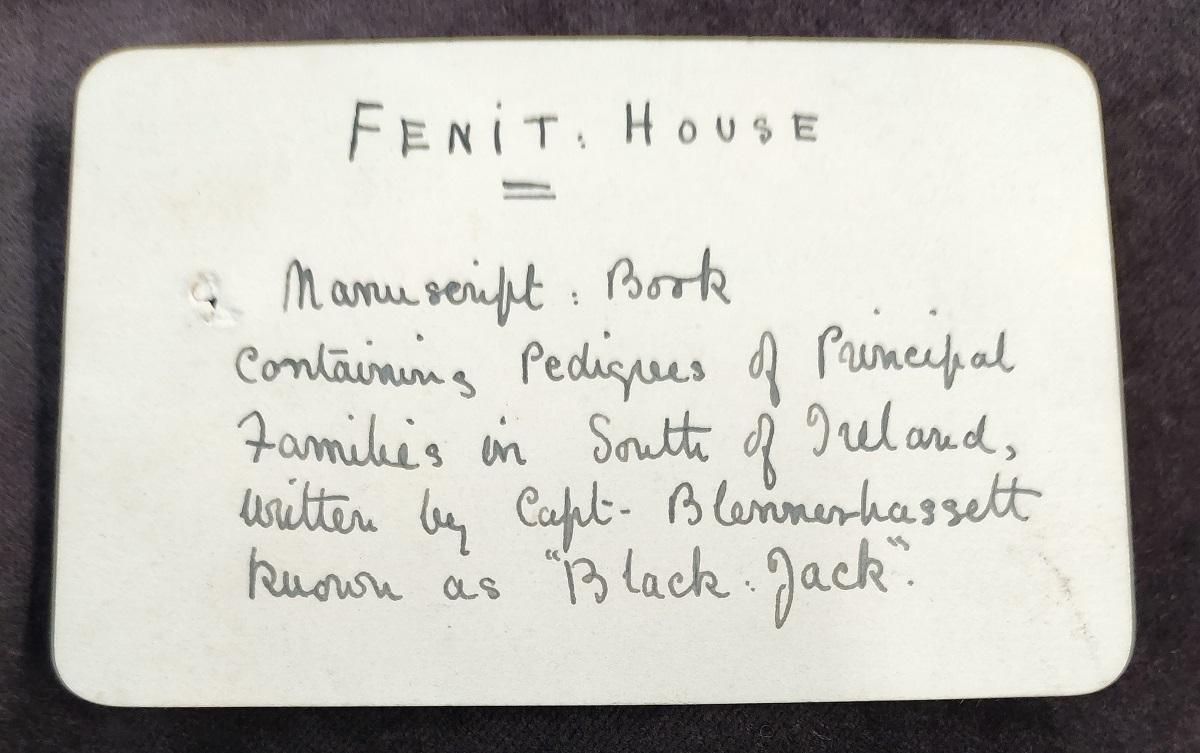 FENIT. HOUSE
Manuscript: Book
Containing Pedigrees of Principal
Families in South of Ireland,
written by Capt- Blennerhassett
known as "Black. Jack".